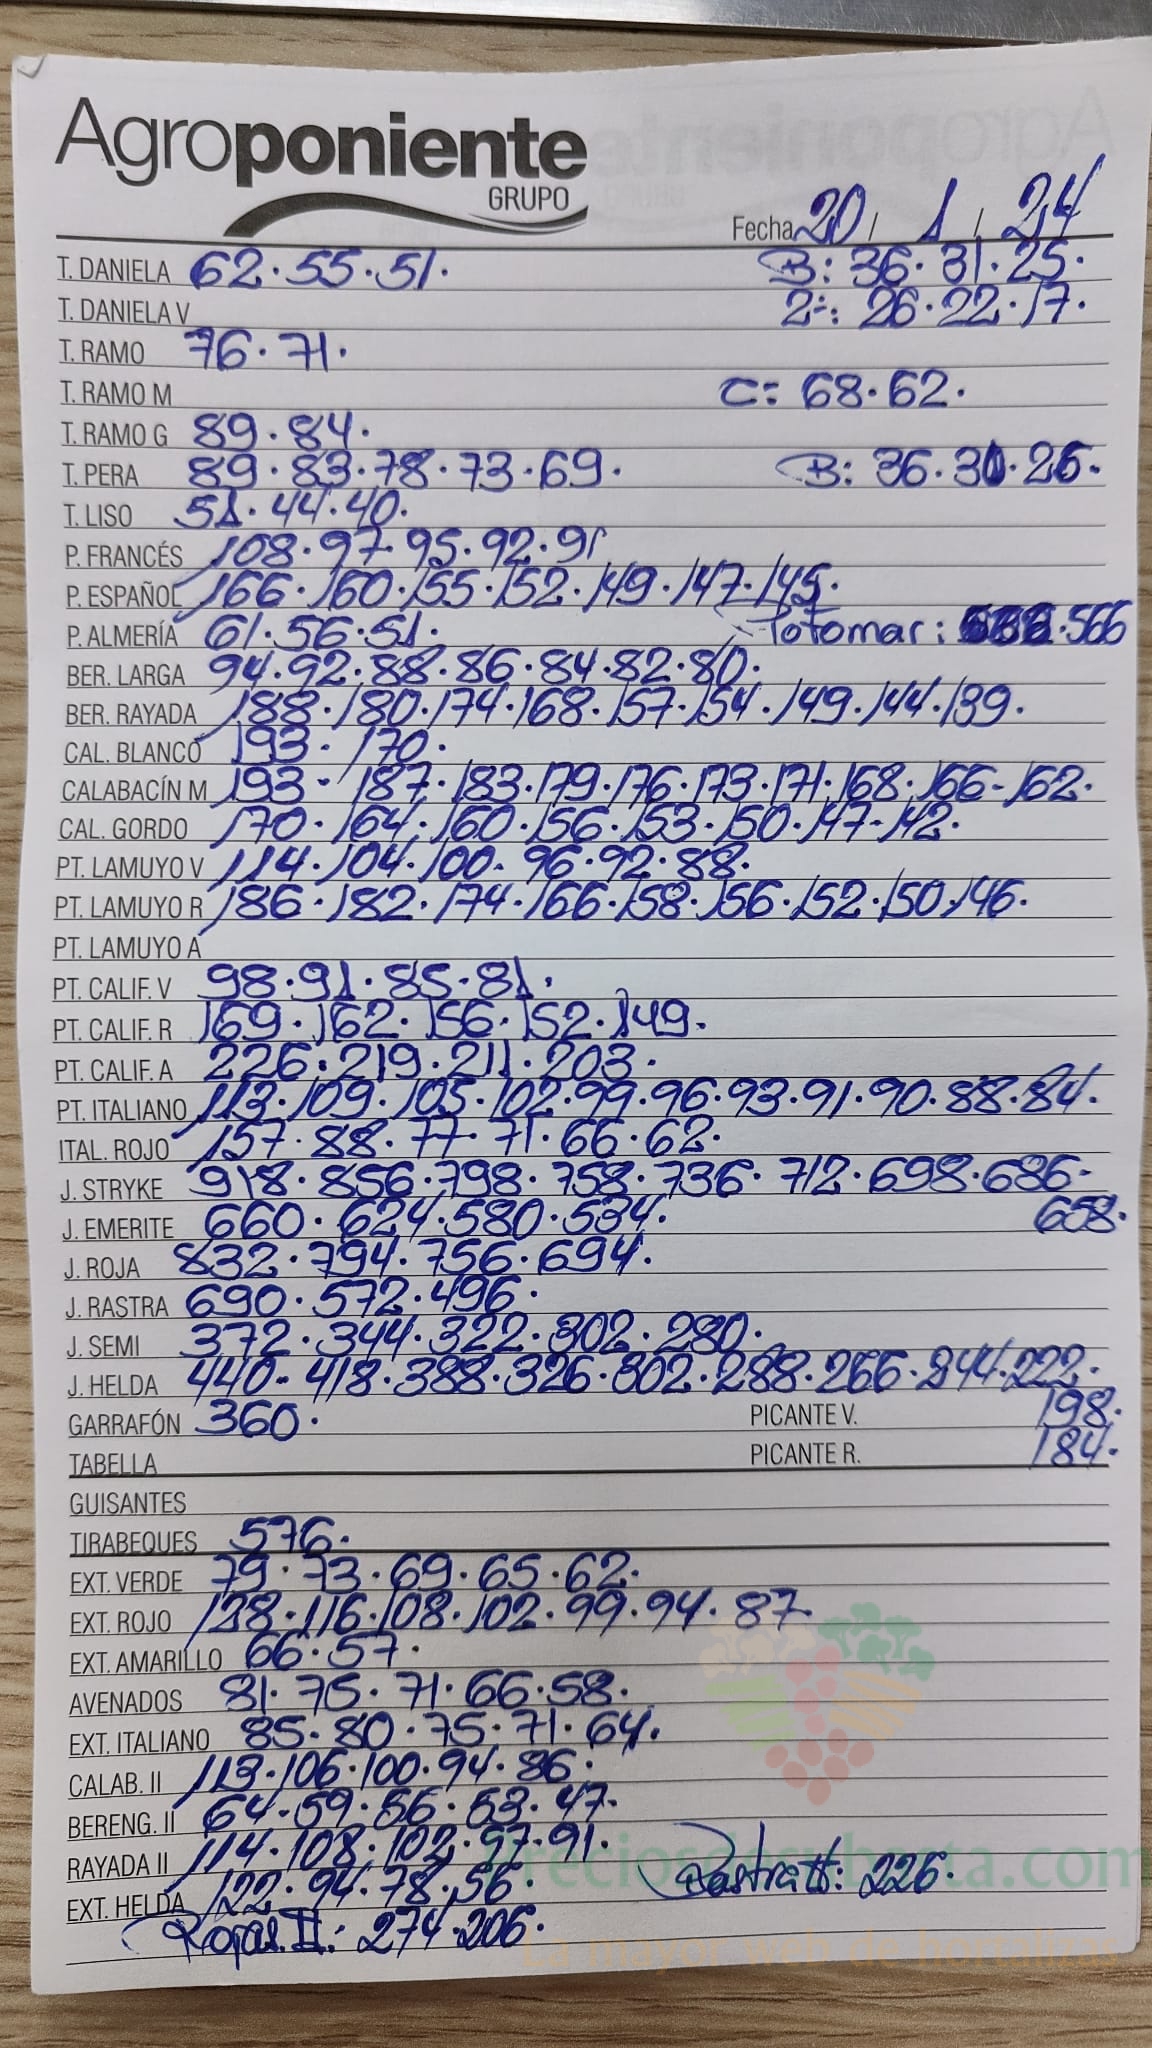 Agroponiente
GRUPO
Fecha 20 / 1 / 24
T. DANIELA 62.55.51. B: 36.31.25.
T. DANIELA V 2ª: 26.22.17.
T. RAMO 76.71.
T. RAMO M C: 68.62.
T. RAMO G 89.84.
T. PERA 89.83.78.73.69. B: 36.30.26.
T. LISO 51.44.40.
P. FRANCÉS 108.97.95.92.91
P. ESPAÑOL 166.160.155.152.149.147.145.
P. ALMERÍA 61.56.51. Potomar: 566
BER. LARGA 94.92.88.86.84.82.80.
BER. RAYADA 188.180.174.168.157.154.149.144.139.
CAL. BLANCO 193.170.
CALABACÍN M 193.187.183.179.176.173.171.168.166.162.
CAL. GORDO 170.164.160.156.153.150.147.142.
PT. LAMUYO V 114.104.100.96.92.88.
PT. LAMUYO R 186.182.174.166.158.156.152.150.146.
PT. LAMUYO A
PT. CALIF. V 98.91.85.81.
PT. CALIF. R 169.162.156.152.149.
PT. CALIF. A 226.219.211.203.
PT. ITALIANO 113.109.105.102.99.96.93.91.90.88.84.
ITAL. ROJO 157.88.77.71.66.62.
J. STRYKE 918.856.798.758.736.712.698.686.
J. EMERITE 660.624.580.534. 658.
J. ROJA 832.794.756.694.
J. RASTRA 690.572.496.
J. SEMI 372.344.322.302.280.
J. HELDA 440.418.388.326.302.288.266.244.222.
GARRAFÓN 360. PICANTE V. 198.
TABELLA PICANTE R. 184.
GUISANTES
TIRABEQUES 576.
EXT. VERDE 79.73.69.65.62.
EXT. ROJO 128.116.108.102.99.94.87
EXT. AMARILLO 66.57.
AVENADOS 81.75.71.66.58.
EXT. ITALIANO 85.80.75.71.64.
CALAB. II 113.106.100.94.86.
BERENG. II 64.59.56.53.47.
RAYADA II 114.108.102.97.91.
EXT. HELDA 122.94.78.56. Rastra II: 226.
Rojas II: 274.206.
La mayor web de hortalizas